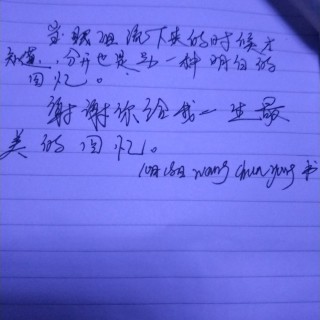 当眼泪流下来的时候才
知道，分开也是另一种明白的
回忆。
谢谢你给我一生最
美的回忆。
wang 书